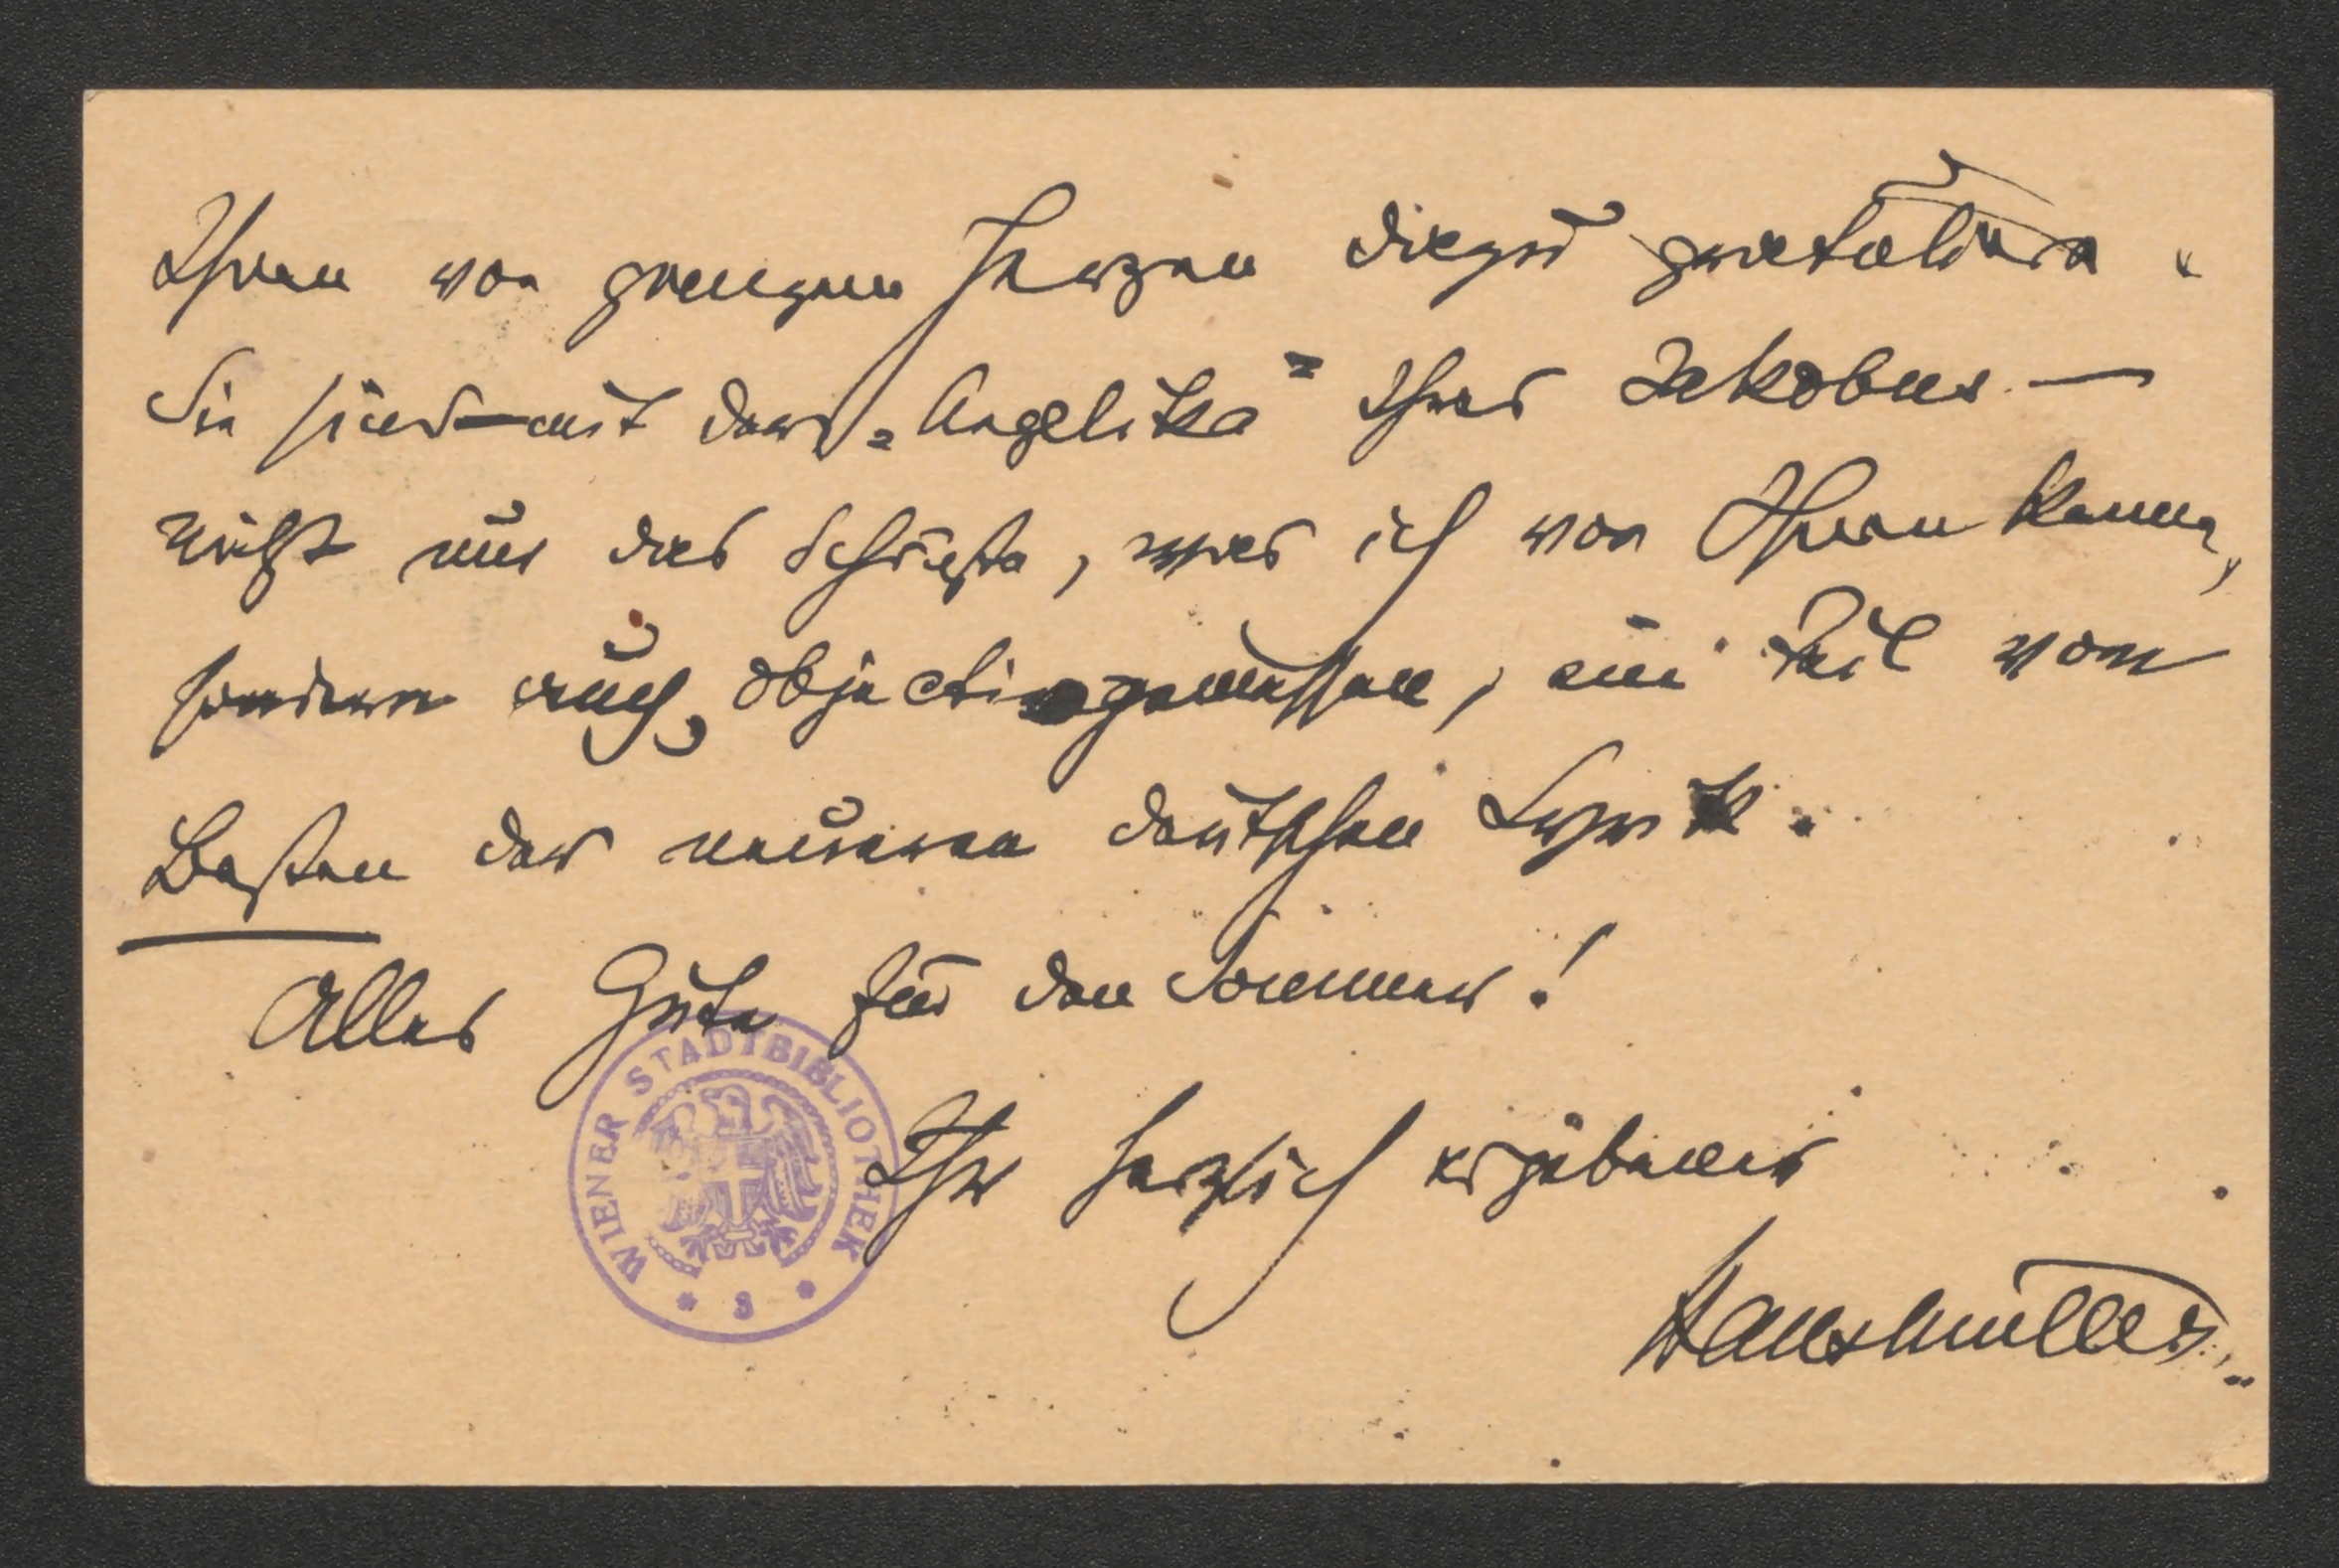 Ihnen von ganzem Herzen dazu gratuliere.
Sie sind mit der „Angelika" Ihres Jakobus —
nicht nur das Schönste, was ich von Ihnen kenne,
sondern auch, objectiv gemessen, ein Teil vom
Besten der neueren deutschen Lyrik.
Alles Gute für den Sommer!
Ihr herzlich ergebener
Hans Müller
WIENER STADTBIBLIOTHEK
* S *